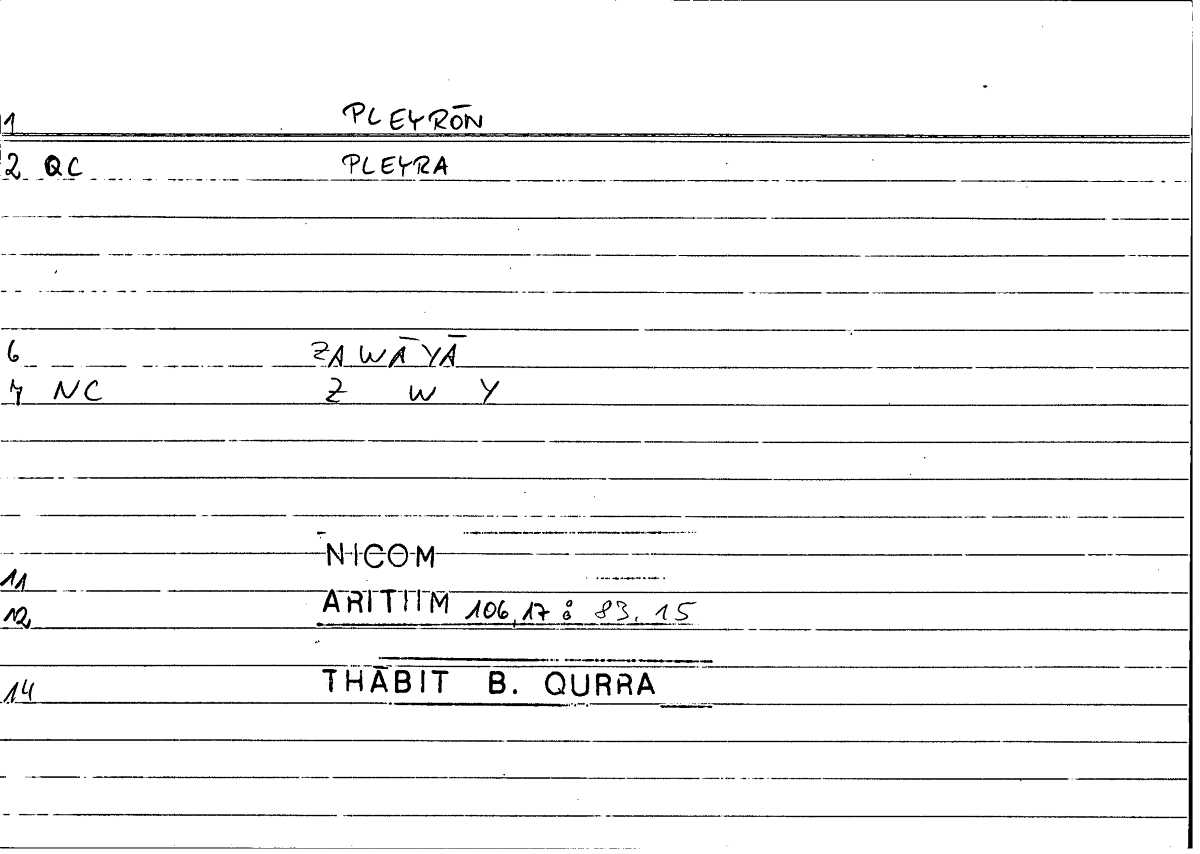 1 PLEYRŌN
2 QC PLEYRA
6 ZAWĀYĀ
7 NC Z W Y
11 NICOM
12 ARITHM 106,17 : 83,15
14 THĀBIT B. QURRA